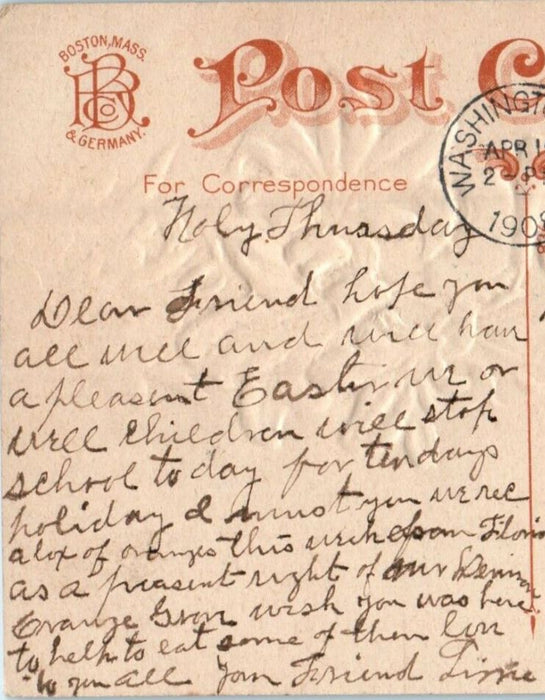 BOSTON, MASS.
& GERMANY.
Post C
WASHINGTO
APR 1
2 - P
1908
For Correspondence
Holy Thursday
Dear Friend hope you
all well and will hav
a pleasent Easter we or
well children will stop
school to day for ten days
holiday I must you we rec
a box of oranges this week from Florid
as a preasent right of our
Orange Grov wish you was here
to help to eat some of them lov
to you all your Friend